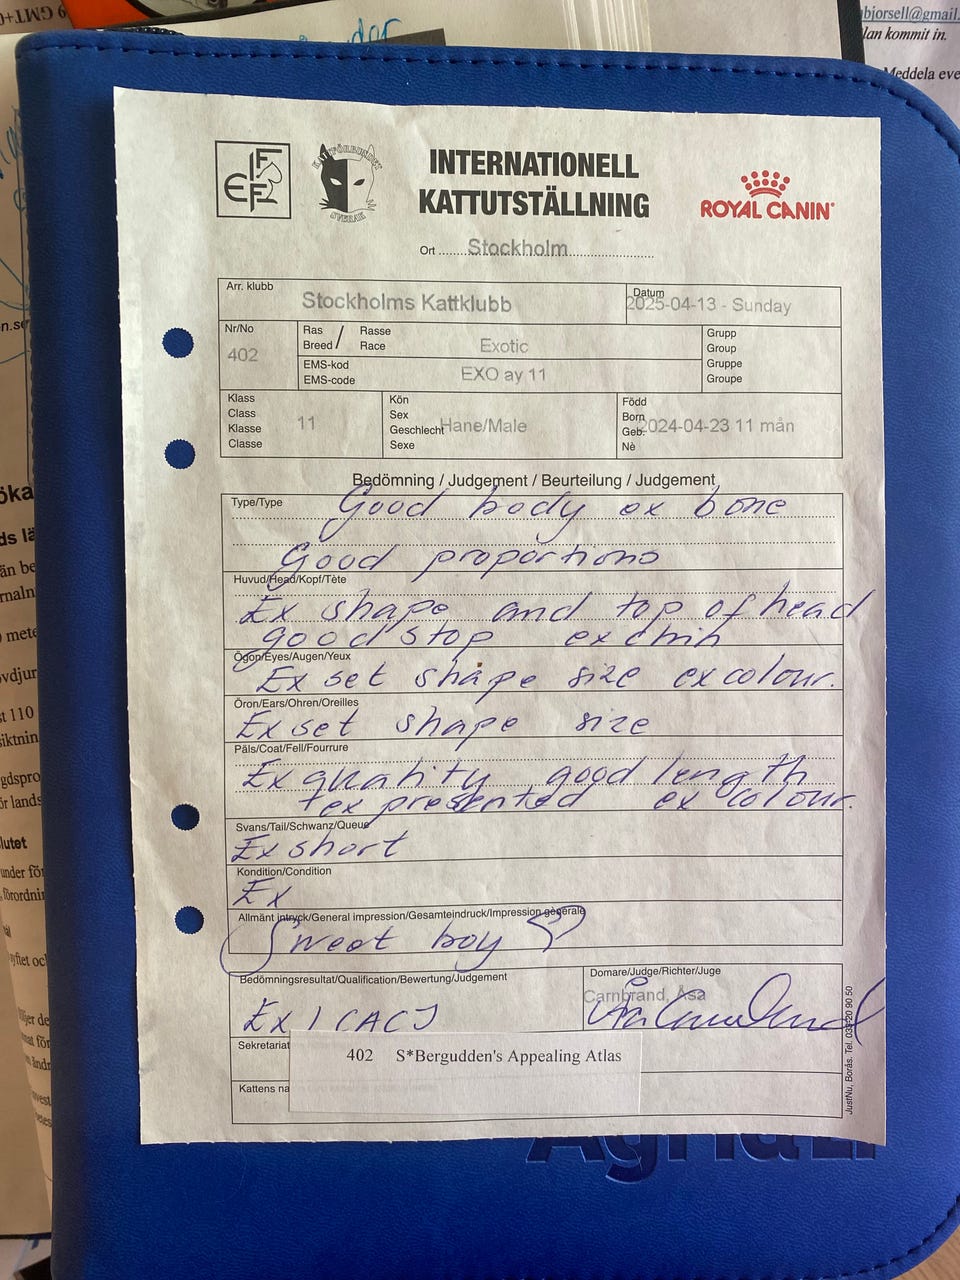 FIFe
KATTFÖRBUNDET
SVERAK
INTERNATIONELL
KATTUTSTÄLLNING
ROYAL CANIN
Ort Stockholm
Arr. klubb
Stockholms Kattklubb
Datum
2025-04-13 - Sunday
Nr/No
402
Ras / Rasse
Breed / Race
Exotic
EMS-kod
EMS-code
EXO ay 11
Grupp
Group
Gruppe
Groupe
Klass
Class
Klasse
Classe
11
Kön
Sex
Geschlecht
Sexe
Hane/Male
Född
Born
Geb.
Nè
2024-04-23 11 mån
Bedömning / Judgement / Beurteilung / Judgement
Type/Type
Good body ex bone
Good proportions
Huvud/Head/Kopf/Tète
Ex shape and top of head
good stop ex chin
Ögon/Eyes/Augen/Yeux
Ex set shape size ex colour.
Öron/Ears/Ohren/Oreilles
Ex set shape size
Päls/Coat/Fell/Fourrure
Ex quality good length
+ ex presented ex colour.
Svans/Tail/Schwanz/Queue
Ex short
Kondition/Condition
Ex
Allmänt intryck/General impression/Gesamteindruck/Impression gègerale
Sweet boy
Bedömningsresultat/Qualification/Bewertung/Judgement
Ex 1 CACJ
Domare/Judge/Richter/Juge
Carnbrand, Åsa
Sekretariat
402 S*Bergudden's Appealing Atlas
Kattens na
JustNu, Borås. Tel. 033-20 90 50
Agria
bjorsell@gmail.
lan kommit in.
Meddela eve